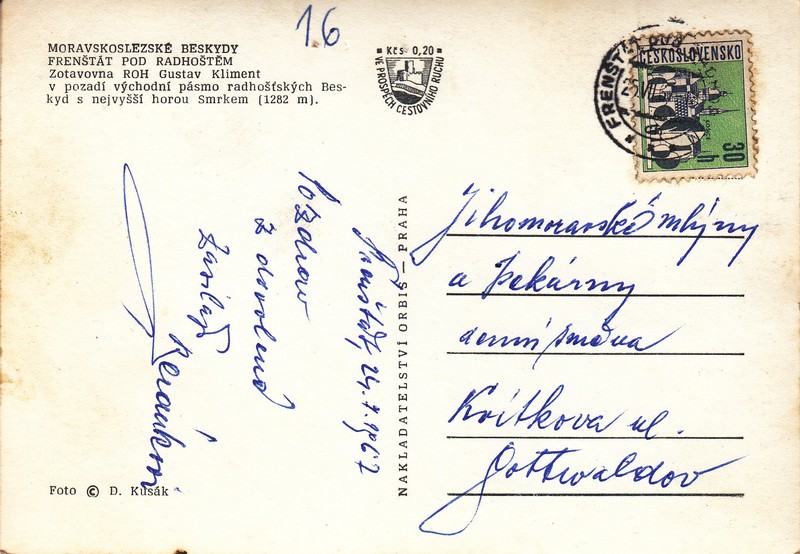 16
MORAVSKOSLEZSKÉ BESKYDY
FRENŠTÁT POD RADHOŠTĚM
Zotavovna ROH Gustav Kliment
v pozadí východní pásmo radhošťských Bes-
kyd s nejvyšší horou Smrkem (1282 m).
Kčs 0,20
VE PROSPĚCH CESTOVNÍHO RUCHU
FRENŠTÁT POD
ČESKOSLOVENSKO
30 h
Frenštát, 24.7.1967
Pozdrav
z dovolené
zasílají
NAKLADATELSTVÍ ORBIS — PRAHA
Jihomoravské mlýny
a Pekárny
denní směna
Kvítkova ul.
Gottwaldov
Foto © D. Kusák